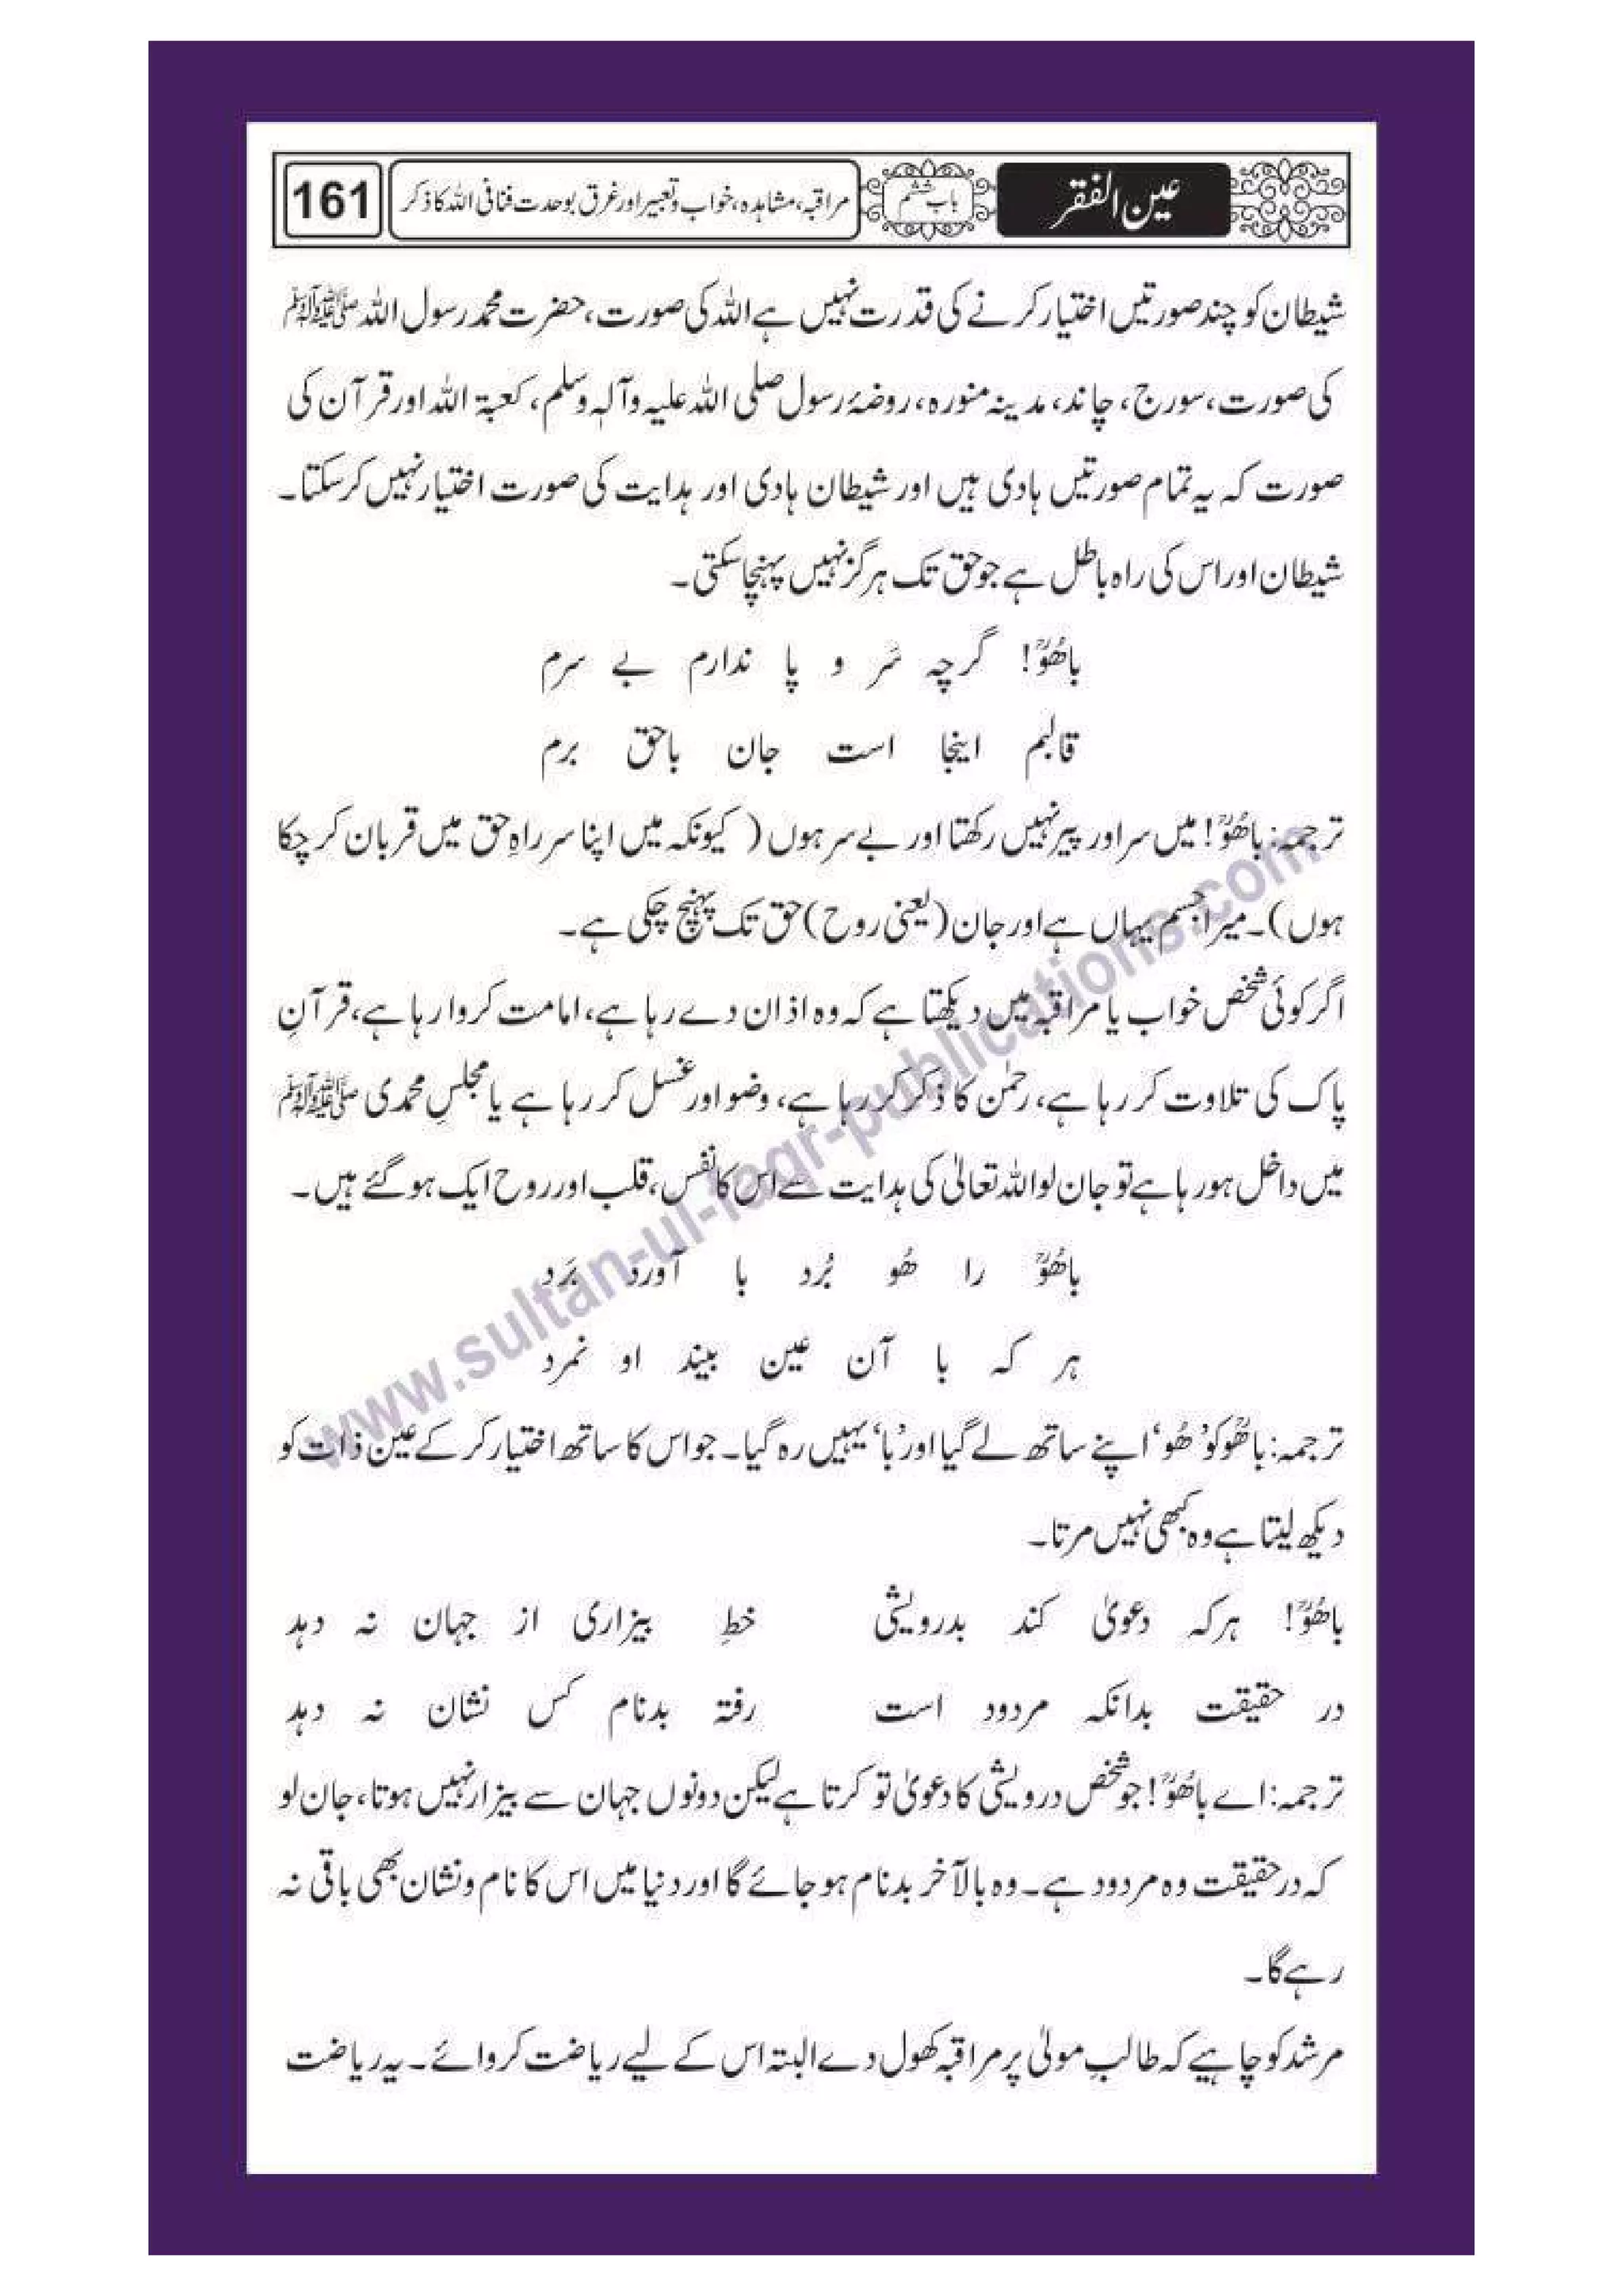 عین الفقر باب ششم مراقبہ، مشاہدہ، خواب و تعبیر اور غرق بوحدت فنا فی اللہ کا ذکر 161
شیطان کو چند صورتیں اختیار کرنے کی قدرت نہیں ہے اللہ کی صورت، حضرت محمد رسول اللہ ﷺ
کی صورت، سورج، چاند، مدینہ منورہ، روضۂ رسول صلی اللہ علیہ وآلہٖ وسلم، کعبۃ اللہ اور قرآن کی
صورت کہ یہ تمام صورتیں ہادی ہیں اور شیطان ہادی اور ہدایت کی صورت اختیار نہیں کر سکتا۔
شیطان اور اس کی راہ باطل ہے جو حق تک ہرگز نہیں پہنچا سکتی۔
باھُوؒ! گرچہ سَر و پا ندارم بے سرم
قالبم اینجا است جان باحق برم
ترجمہ: باھُوؒ! میں سر اور پیر نہیں رکھتا اور بے سر ہوں (کیونکہ میں اپنا سر راہِ حق میں قربان کر چکا
ہوں)۔ میرا جسم یہاں ہے اور جان (یعنی روح) حق تک پہنچ چکی ہے۔
اگر کوئی شخص خواب یا مراقبہ میں دیکھتا ہے کہ وہ اذان دے رہا ہے، امامت کروا رہا ہے، قرآنِ
پاک کی تلاوت کر رہا ہے، رحمٰن کا ذکر کر رہا ہے، وضو اور غسل کر رہا ہے یا مجلسِ محمدی ﷺ
میں داخل ہو رہا ہے تو جان لو اللہ تعالیٰ کی ہدایت سے اس کا نفس، قلب اور روح ایک ہو گئے ہیں۔
باھُوؒ را ھُو بُرد با آورد بَرَد
ہر کہ با آن عین بیند او نمرد
ترجمہ: باھُوؒ کو ’ھُو‘ اپنے ساتھ لے گیا اور ’با‘ یہیں رہ گیا۔ جو اس کا ساتھ اختیار کر کے عین ذات کو
دیکھ لیتا ہے وہ کبھی نہیں مرتا۔
باھُوؒ! ہرکہ دعویٰ کند بدرویشی خطِ بیزاری از جہان نہ دہد
در حقیقت بدانکہ مردود است رفتہ بدنام کس نشان نہ دہد
ترجمہ: اے باھُوؒ! جو شخص درویشی کا دعویٰ تو کرتا ہے لیکن دونوں جہان سے بیزار نہیں ہوتا، جان لو
کہ درحقیقت وہ مردود ہے۔ وہ بالآخر بدنام ہو جائے گا اور دنیا میں اس کا نام و نشان بھی باقی نہ
رہے گا۔
مرشد کو چاہیے کہ طالبِ مولیٰ پر مراقبہ کھول دے البتہ اس کے لیے ریاضت کروائے۔ یہ ریاضت
www.sultan-ul-faqr-publications.com